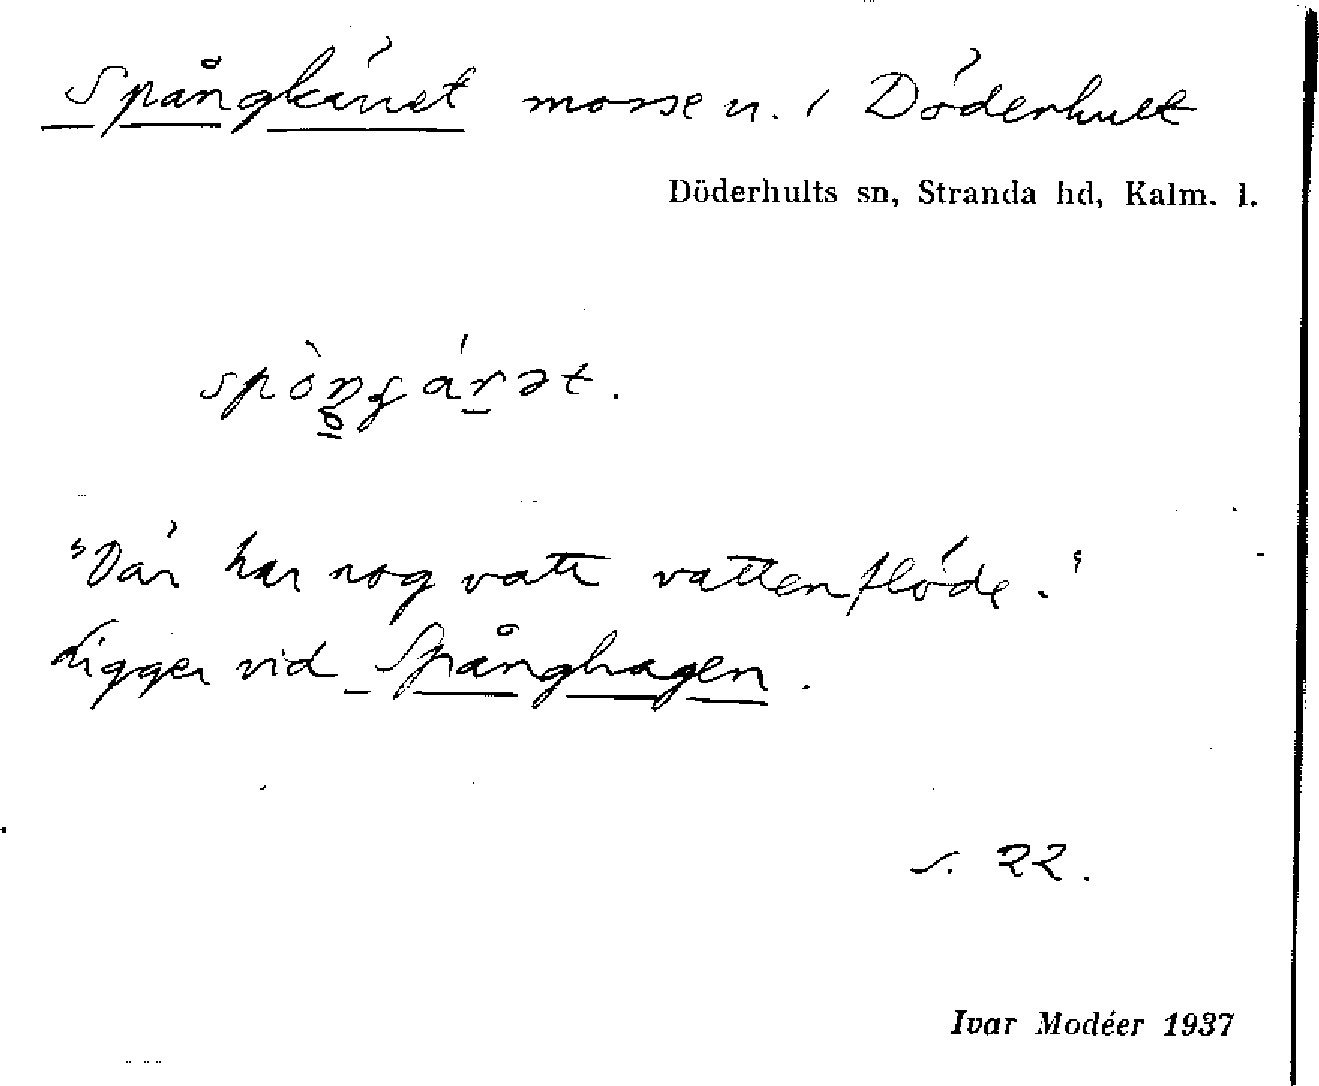 Spångkärret mosse n. i Döderhult
Döderhults sn, Stranda hd, Kalm. l.
"Där har nog vatt vattenflöde."
Ligger vid Spånghagen.
s. 22.
Ivar Modéer 1937